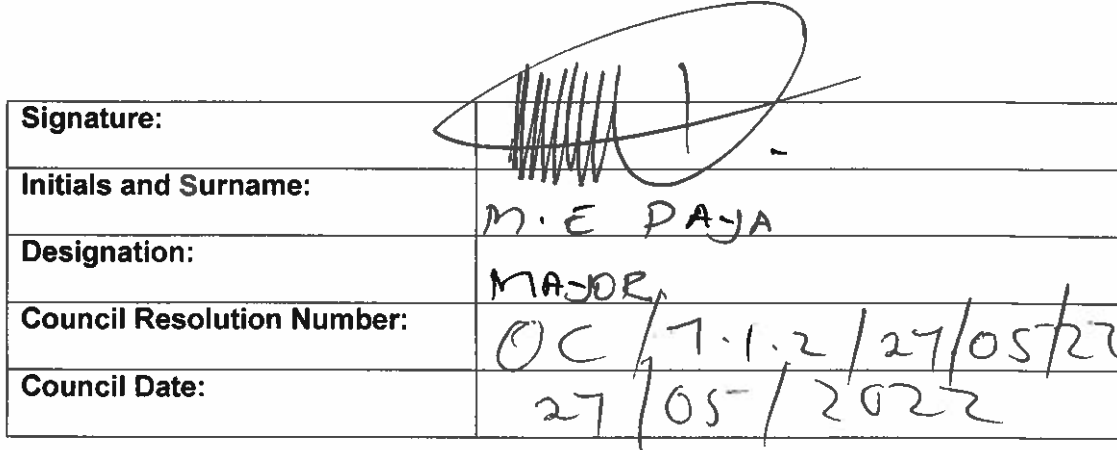 Signature:
Initials and Surname:
M.E PAYA
Designation:
MAJOR
Council Resolution Number:
OC/7.1.2/27/05/22
Council Date:
27/05/2022